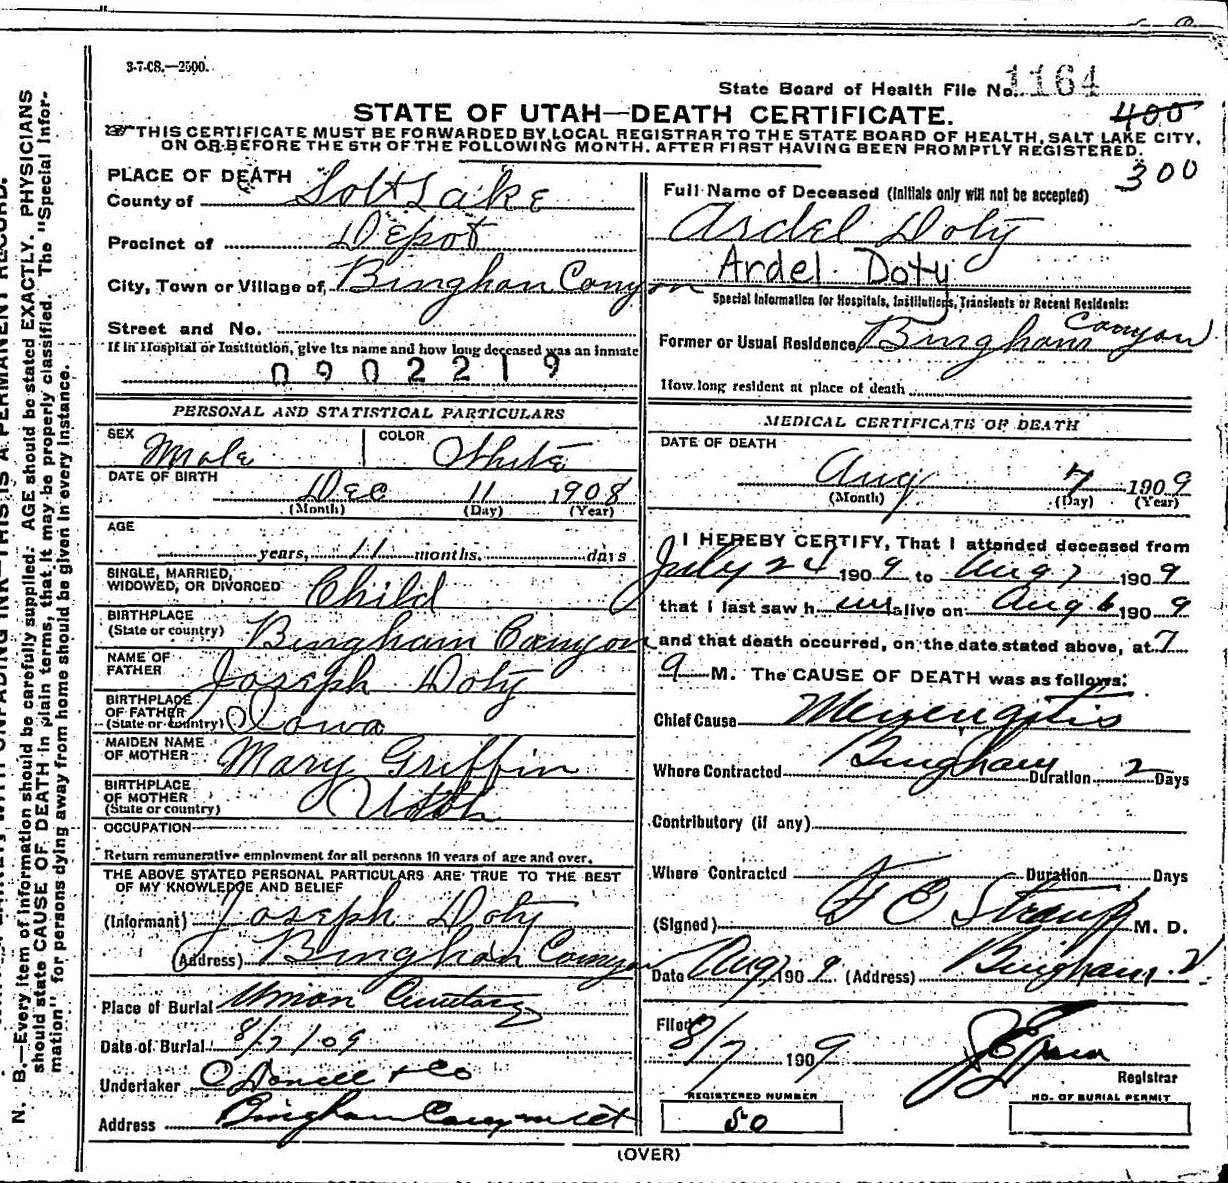 3-7-08.—2500.
State Board of Health File No. 1164
STATE OF UTAH—DEATH CERTIFICATE.
400
THIS CERTIFICATE MUST BE FORWARDED BY LOCAL REGISTRAR TO THE STATE BOARD OF HEALTH, SALT LAKE CITY,
ON OR BEFORE THE 5TH OF THE FOLLOWING MONTH. AFTER FIRST HAVING BEEN PROMPTLY REGISTERED.
300
PLACE OF DEATH
County of Solt Lake
Precinct of Depot
City, Town or Village of, Bingham Canyon
Street and No.
If in Hospital or Institution, give its name and how long deceased was an inmate
0902219
PERSONAL AND STATISTICAL PARTICULARS
SEX Male COLOR White
DATE OF BIRTH
Dec 11 1908
(Month) (Day) (Year)
AGE
years, 11 months. days
SINGLE, MARRIED,
WIDOWED, OR DIVORCED Child
BIRTHPLACE
(State or country) Bingham Canyon
NAME OF
FATHER Joseph Doty
BIRTHPLACE
OF FATHER
(State or country) Iowa
MAIDEN NAME
OF MOTHER Mary Griffin
BIRTHPLACE
OF MOTHER
(State or country) Utah
OCCUPATION
Return remunerative employment for all persons 10 years of age and over.
THE ABOVE STATED PERSONAL PARTICULARS ARE TRUE TO THE BEST
OF MY KNOWLEDGE AND BELIEF
(Informant) Joseph Doty
(Address) Bingham Canyon
Place of Burial Union Cemetary
Date of Burial 8/7/09
Undertaker O Donell + Co
Address Bingham Canyon
Full Name of Deceased (Initials only will not be accepted)
Ardel Doty
Ardel Doty
Special Information for Hospitals, Institutions, Transients or Recent Residents:
Former or Usual Residence Bingham Canyon
How long resident at place of death
MEDICAL CERTIFICATE OF DEATH
DATE OF DEATH
Aug 7 1909
(Month) (Day) (Year)
I HEREBY CERTIFY, That I attended deceased from
July 24 1909 to Aug 7 1909
that I last saw h im alive on Aug 6 1909
and that death occurred, on the date stated above, at 7
a M. The CAUSE OF DEATH was as follows:
Chief Cause Menengitis
Where Contracted Bingham Duration 2 Days
Contributory (if any)
Where Contracted Duration Days
(Signed) F E Straup M. D.
Date Aug 7 1909 (Address) Bingham
Filed 8/7 1909
Registrar
REGISTERED NUMBER
50
NO. OF BURIAL PERMIT
(OVER)
N. B.—Every item of information should be carefully supplied. AGE should be stated EXACTLY. PHYSICIANS
should state CAUSE OF DEATH in plain terms, that it may be properly classified. The "Special Infor-
mation" for persons dying away from home should be given in every instance.